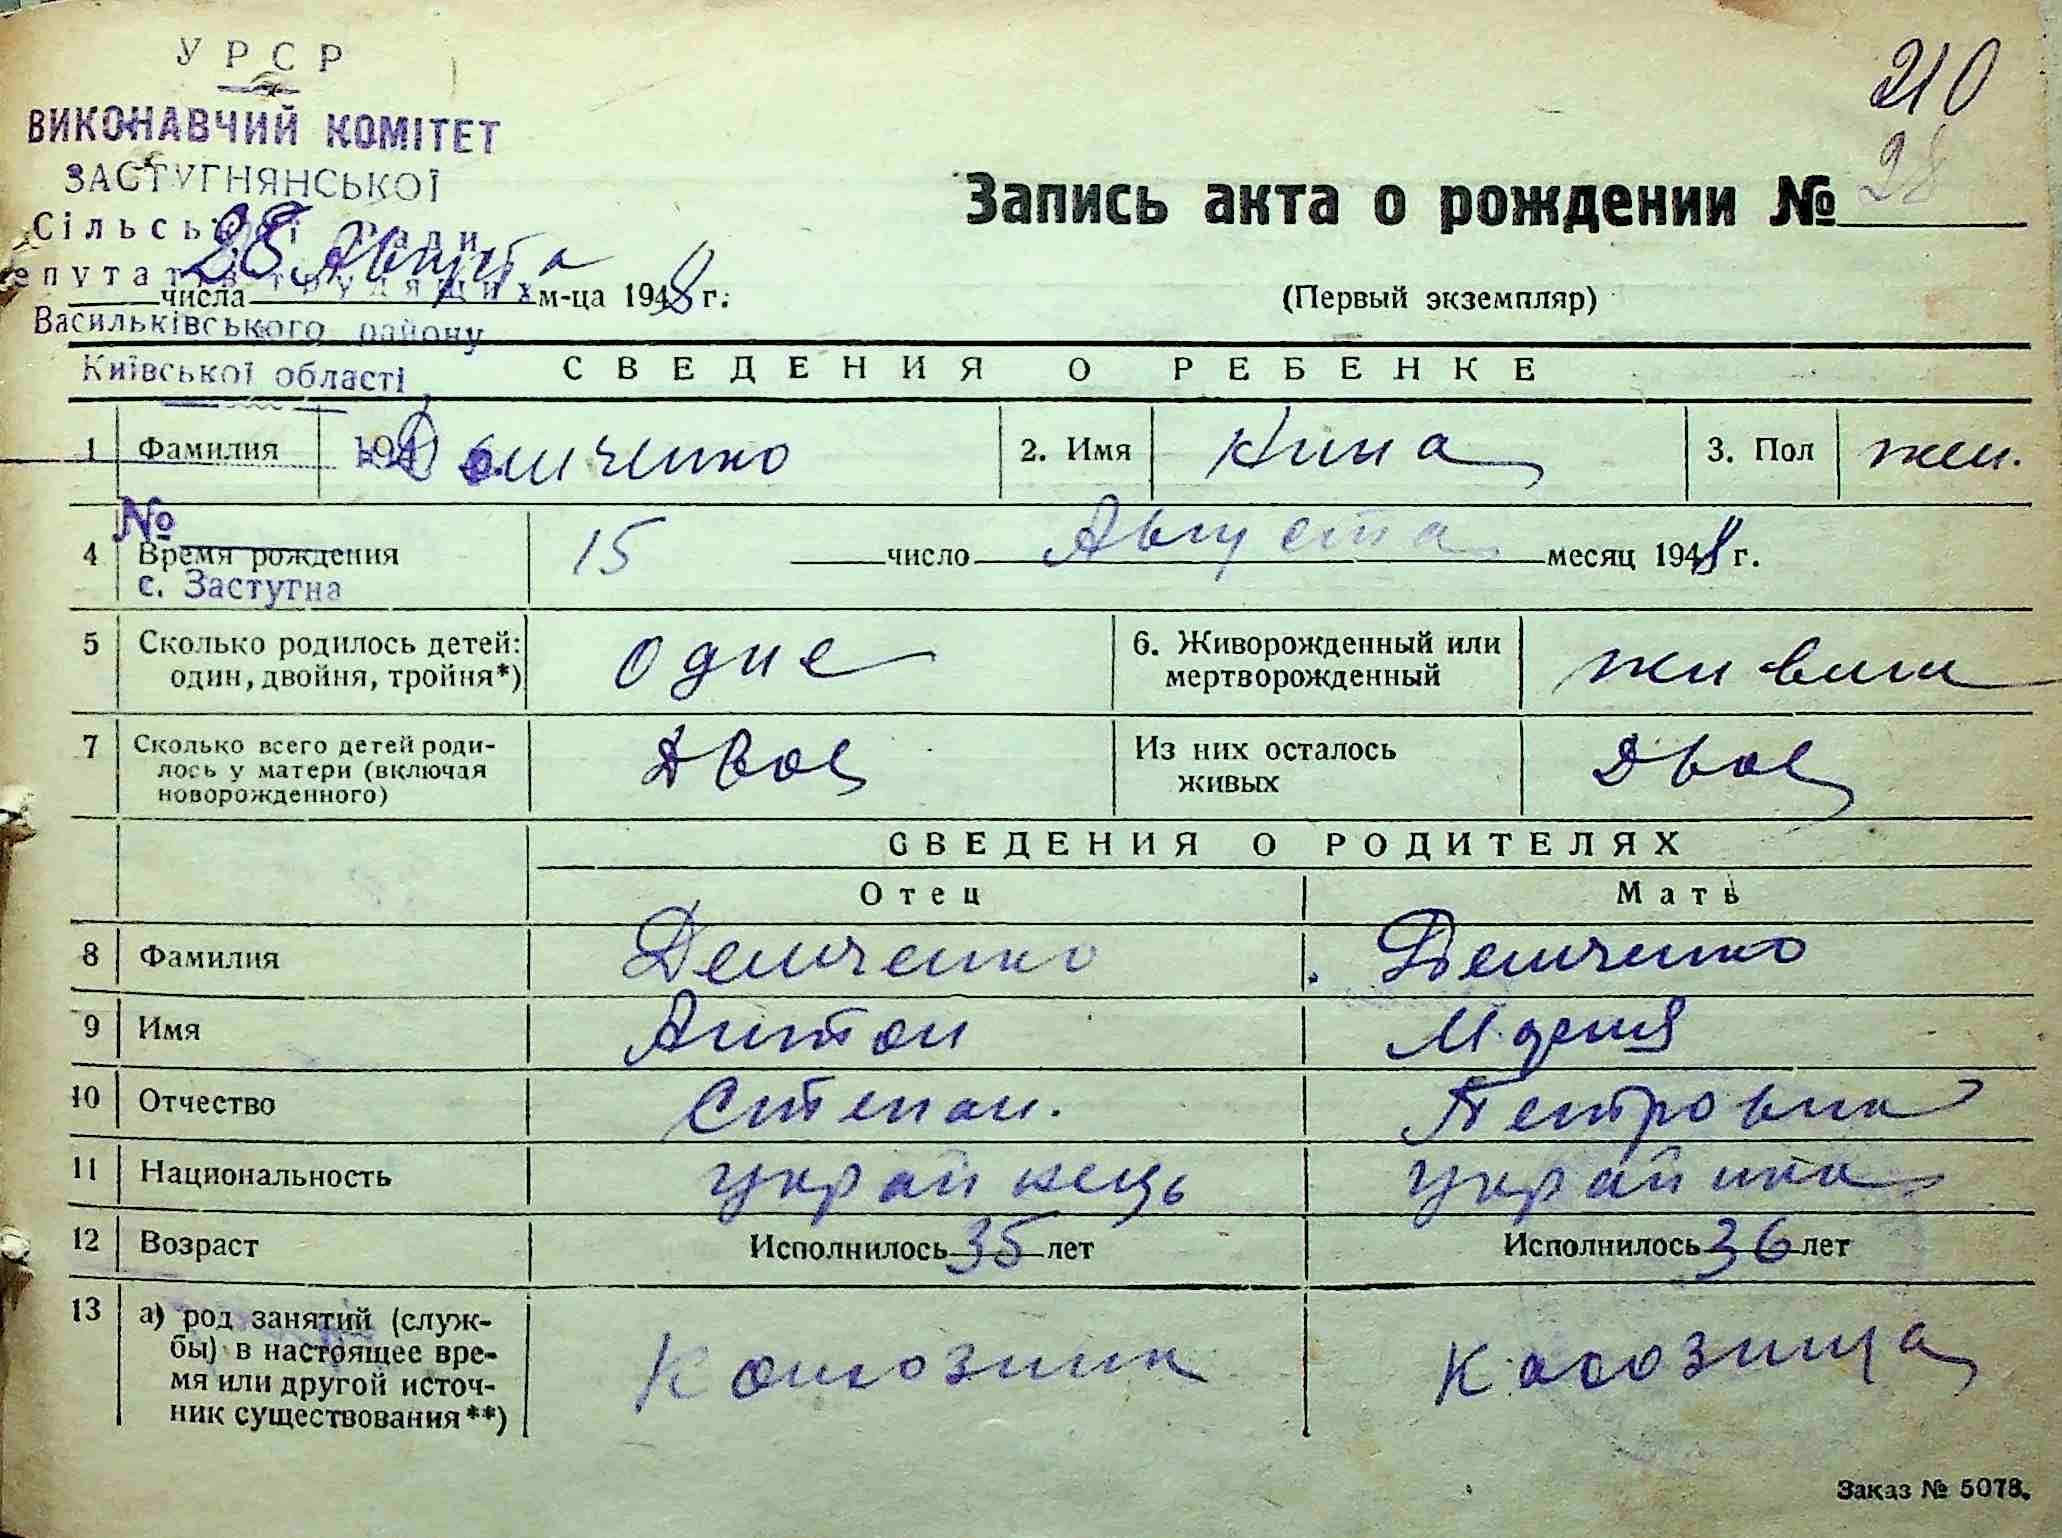 УРСР
ВИКОНАВЧИЙ КОМІТЕТ
ЗАСТУГНЯНСЬКОЇ
Сільської Ради
депутатів трудящих
Васильківського району
Київської області
194
№
с. Застугна
210
Запись акта о рождении № 28
(Первый экземпляр)
28 числа Августа м-ца 1948 г.
СВЕДЕНИЯ О РЕБЕНКЕ
1 Фамилия Демченко 2. Имя Нина 3. Пол жен.
4 Время рождения 15 число Августа месяц 1948 г.
5 Сколько родилось детей: один, двойня, тройня*) одне 6. Живорожденный или мертворожденный
7 Сколько всего детей родилось у матери (включая новорожденного) Двое Из них осталось живых Двое
СВЕДЕНИЯ О РОДИТЕЛЯХ
Отец Мать
8 Фамилия Демченко Демченко
9 Имя Антон Мария
10 Отчество Степан. Петровна
11 Национальность українець українка
12 Возраст Исполнилось 35 лет Исполнилось 36 лет
13 а) род занятий (службы) в настоящее время или другой источник существования**)
Заказ № 5078.